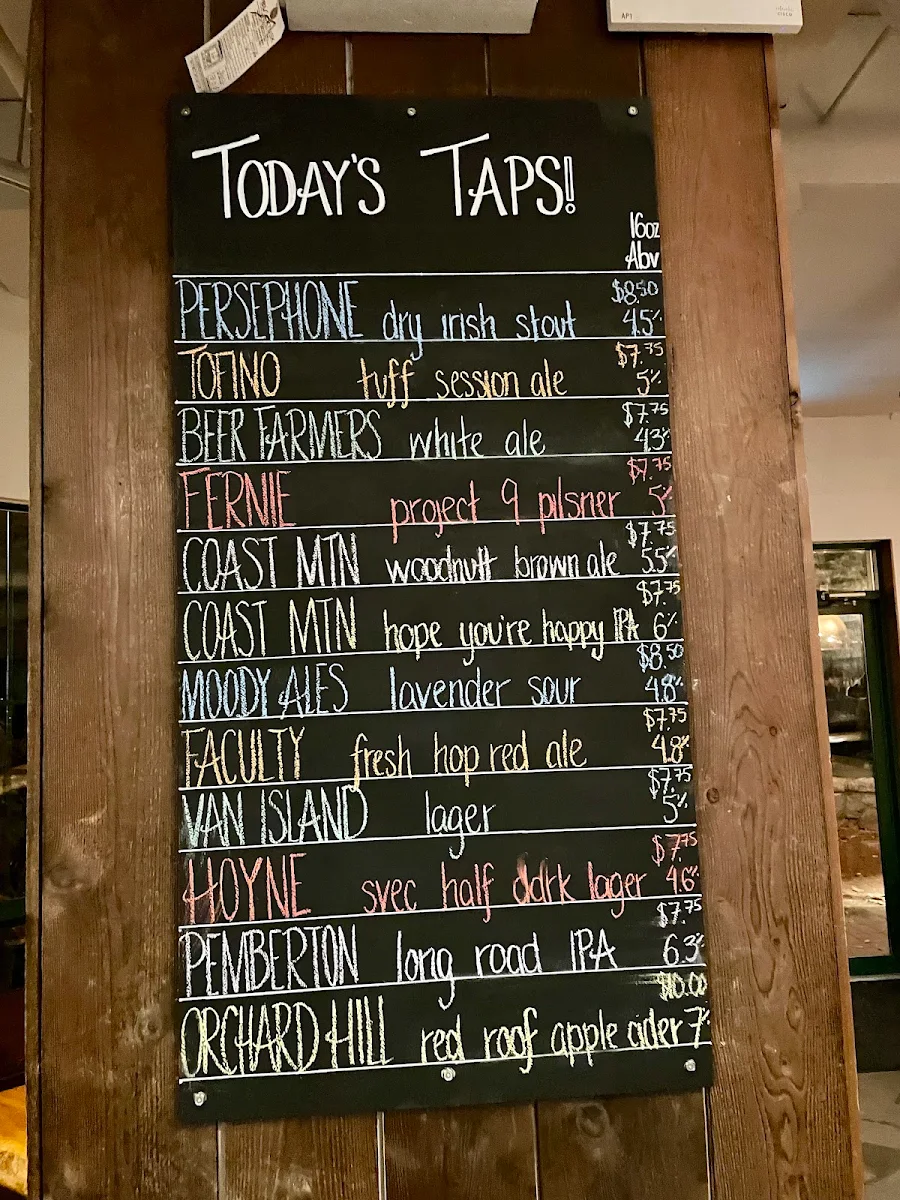 AP1
TODAY'S TAPS!
16oz
Abv
PERSEPHONE dry irish stout $8.50 4.5%
TOFINO tuff session ale $7.75 5%
BEER FARMERS white ale $7.75 4.3%
FERNIE project 9 pilsner $7.75 5%
COAST MTN woodnutt brown ale $7.75 5.5%
COAST MTN hope you're happy IPA $7.75 6%
MOODY ALES lavender sour $8.50 4.8%
FACULTY fresh hop red ale $7.75 4.8%
VAN ISLAND lager $7.75 5%
HOYNE svec half dark lager $7.75 4.6%
PEMBERTON long road IPA $7.75 6.3%
ORCHARD HILL red roof apple cider $10.00 7%